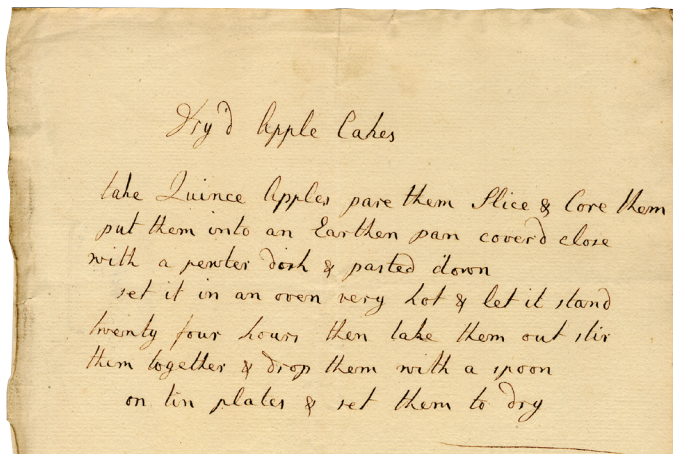 Dry'd Apple Cakes
take Quince Apples pare them Slice & Core them
put them into an Earthen pan cover'd close
with a pewter dish & pasted down
set it in an oven very hot & let it stand
twenty four hours then take them out stir
them together & drop them with a spoon
on tin plates & set them to dry